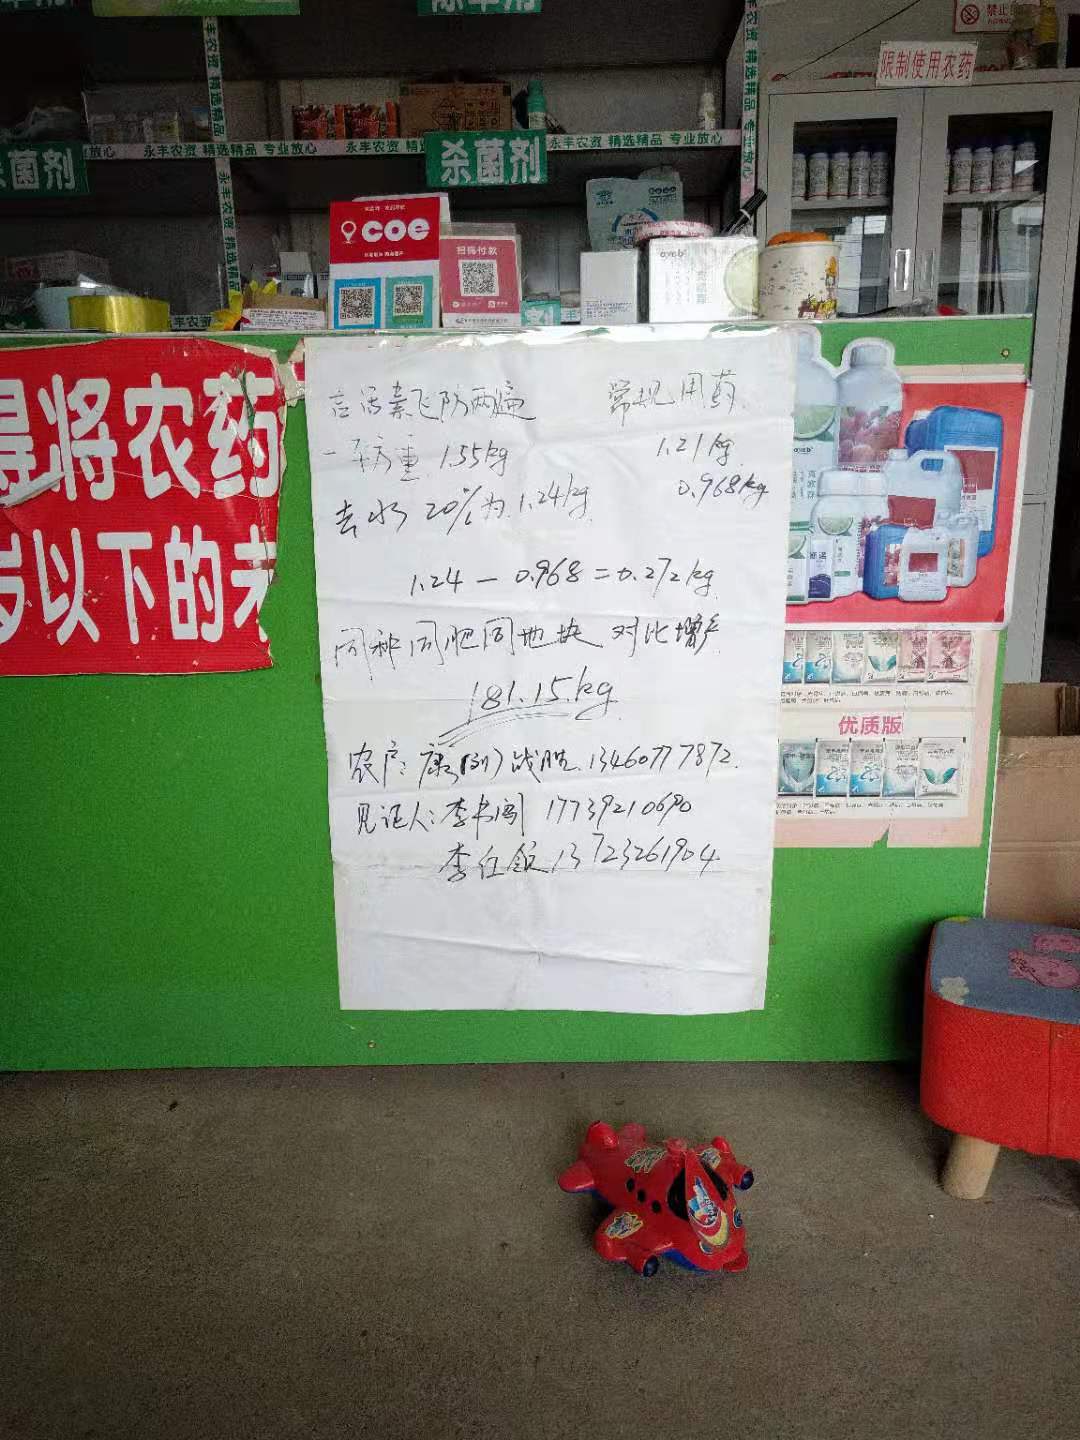 除草剂
禁止
限制使用农药
永丰农资 精选精品 专业放心
杀菌剂
杀菌剂
coe
扫码付款
得将农药
岁以下的未
高活素飞防两遍 常规用药
一平方重 1.55kg 1.21kg
去水分 20%为 1.24kg 0.968kg
1.24－0.968=0.272kg
同种同肥同地块 对比增产
181.15kg
农户: 康(刘)战胜 13460777872
见证人: 李书阁 17739210690
李红领 13723261904
优质版